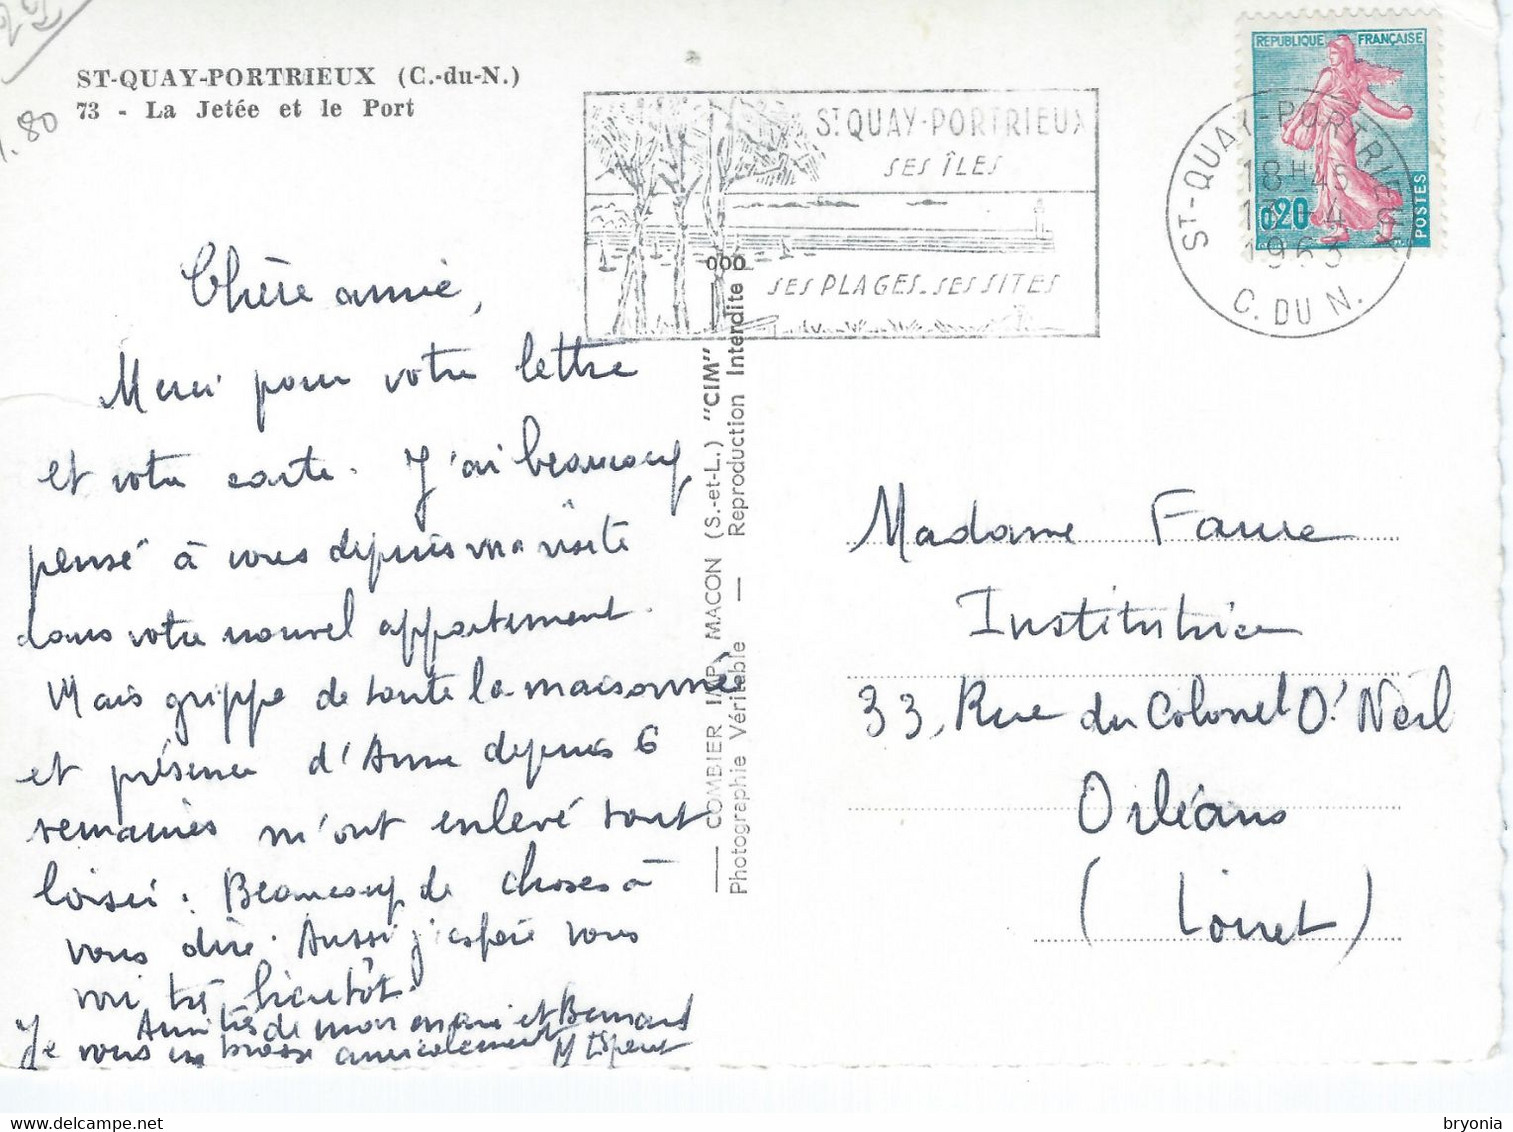 ST-QUAY-PORTRIEUX (C.-du-N.)
73 - La Jetée et le Port
.80
ST QUAY-PORTRIEUX
SES ÎLES
SES PLAGES_SES SITES
REPUBLIQUE FRANÇAISE
0,20
POSTES
ST-QUAY-PORTRIEUX
18H45
-4
1963
C. DU N.
Chère amie,
Merci pour votre lettre
et votre carte. J'ai beaucoup
pensé à vous depuis ma visite
dans votre nouvel appartement.
Mais grippe de toute la maisonnée
et présence d'Anne depuis 6
semaines m'ont enlevé tout
loisir. Beaucoup de choses à
vous dire. Aussi j'espère vous
voir très bientôt.
Amitiés de mon mari et Bernard
Je vous embrasse amicalement
COMBIER IMP. MACON (S.-et-L.) "CIM"
Photographie Véritable — Reproduction Interdite
Madame Faure
Institutrice
33, Rue du Colonel O'Neil
Orléans
(Loiret)
bryonia